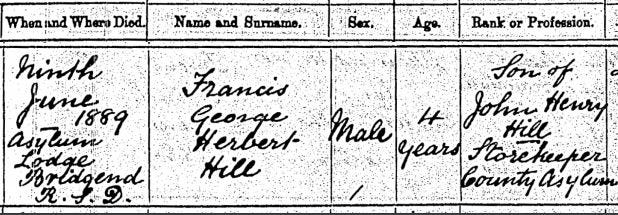 When and Where Died. Name and Surname. Sex. Age. Rank or Profession.
Ninth
June
1889
Asylum
Lodge
Bridgend
R. S. D.
Francis
George
Herbert
Hill
Male
4
years
Son of
John Henry
Hill
Storekeeper
County Asylum